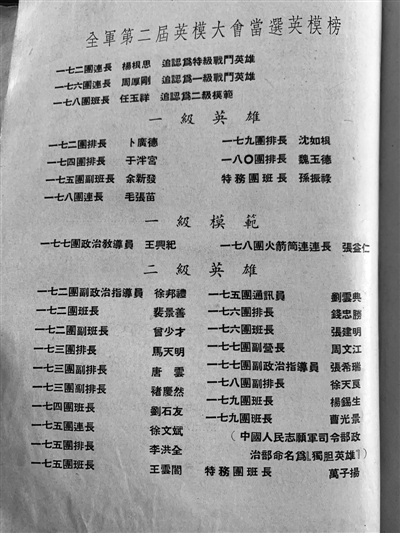 全軍第二届英模大會當選英模榜
一七二團連長 楊根思 追認爲特級戰鬥英雄
一七六團連長 周厚剛 追認爲一級戰鬥英雄
一七八團班長 任玉祥 追認爲二級模範
一級英雄
一七二團排長 卜廣德
一七四團排長 于泮宮
一七五團副班長 余新發
一七八團連長 毛張苗
一七九團排長 沈如根
一八〇團排長 魏玉德
特務團班長 孫振祿
一級模範
一七七團政治教導員 王興紀
一七八團火箭筒連連長 張釜仁
二級英雄
一七二團副政治指導員 徐邦禮
一七二團班長 裴景善
一七二團副班長 曾少才
一七三團排長 馬天明
一七三團副排長 唐雲
一七三團副排長 褚慶然
一七四團班長 劉石友
一七五團連長 徐文斌
一七五團排長 李洪全
一七五團班長 王雲閣
一七五團通訊員 劉雲典
一七六團排長 錢忠勝
一七六團班長 張建明
一七七團副營長 周文江
一七七團副政治指導員 張希瑞
一七八團副排長 徐天良
一七九團班長 楊錫生
一七九團班長 曹光景
(中國人民志願軍司令部政
治部命名爲「獨胆英雄」)
特務團班長 萬子揚